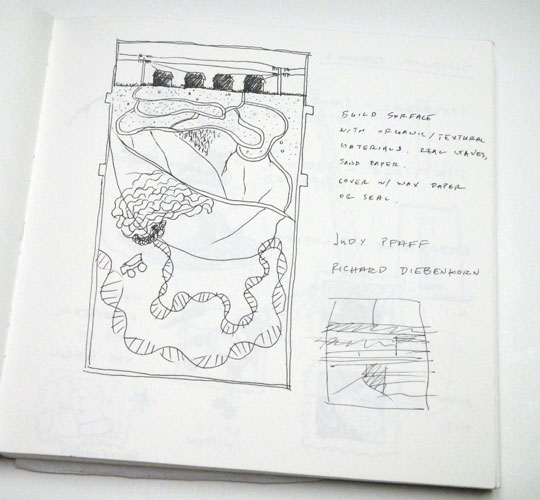 BUILD SURFACE
WITH ORGANIC/TEXTURAL
MATERIALS. REAL LEAVES,
SAND PAPER.
COVER W/ WAX PAPER
OR SEAL.
JUDY PFAFF
RICHARD DIEBENKORN